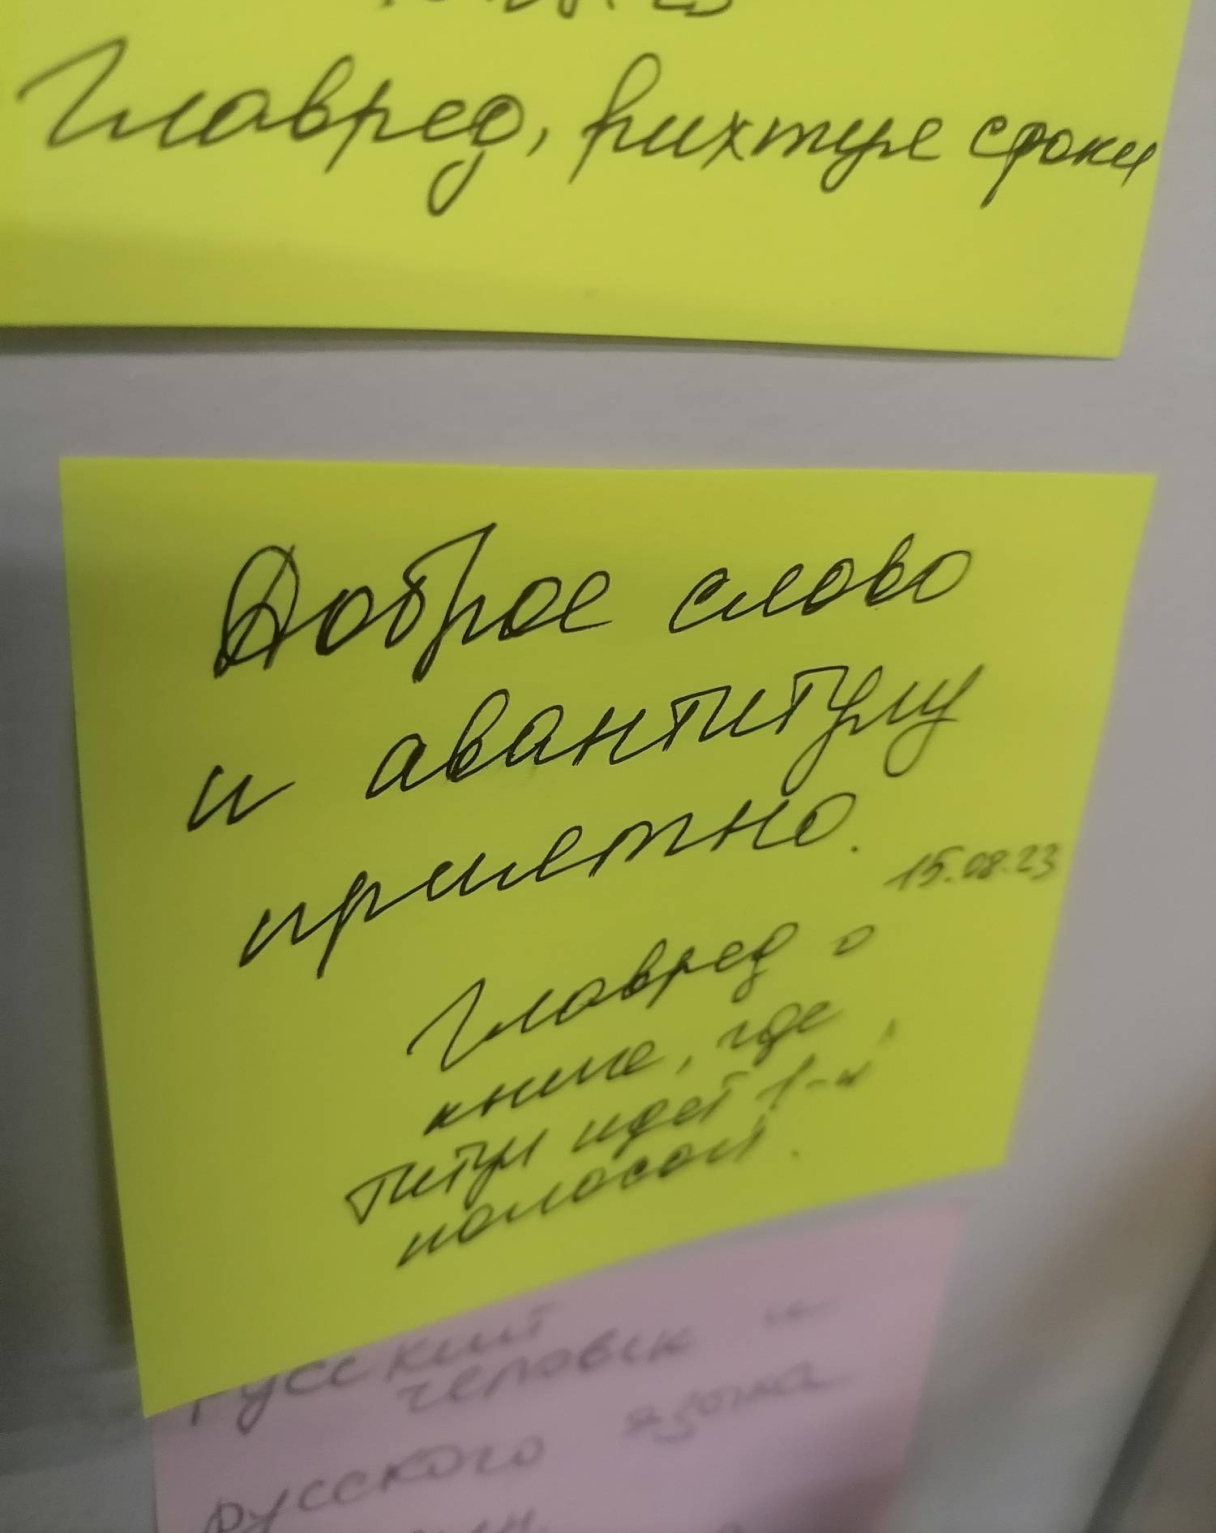 Главред, рихтуя сроки
Доброе слово
и авантитулу
приятно.
15.08.23
Главред о
книге, где
титул идет 1-й
полосой.
Русский
человек и
русского языка